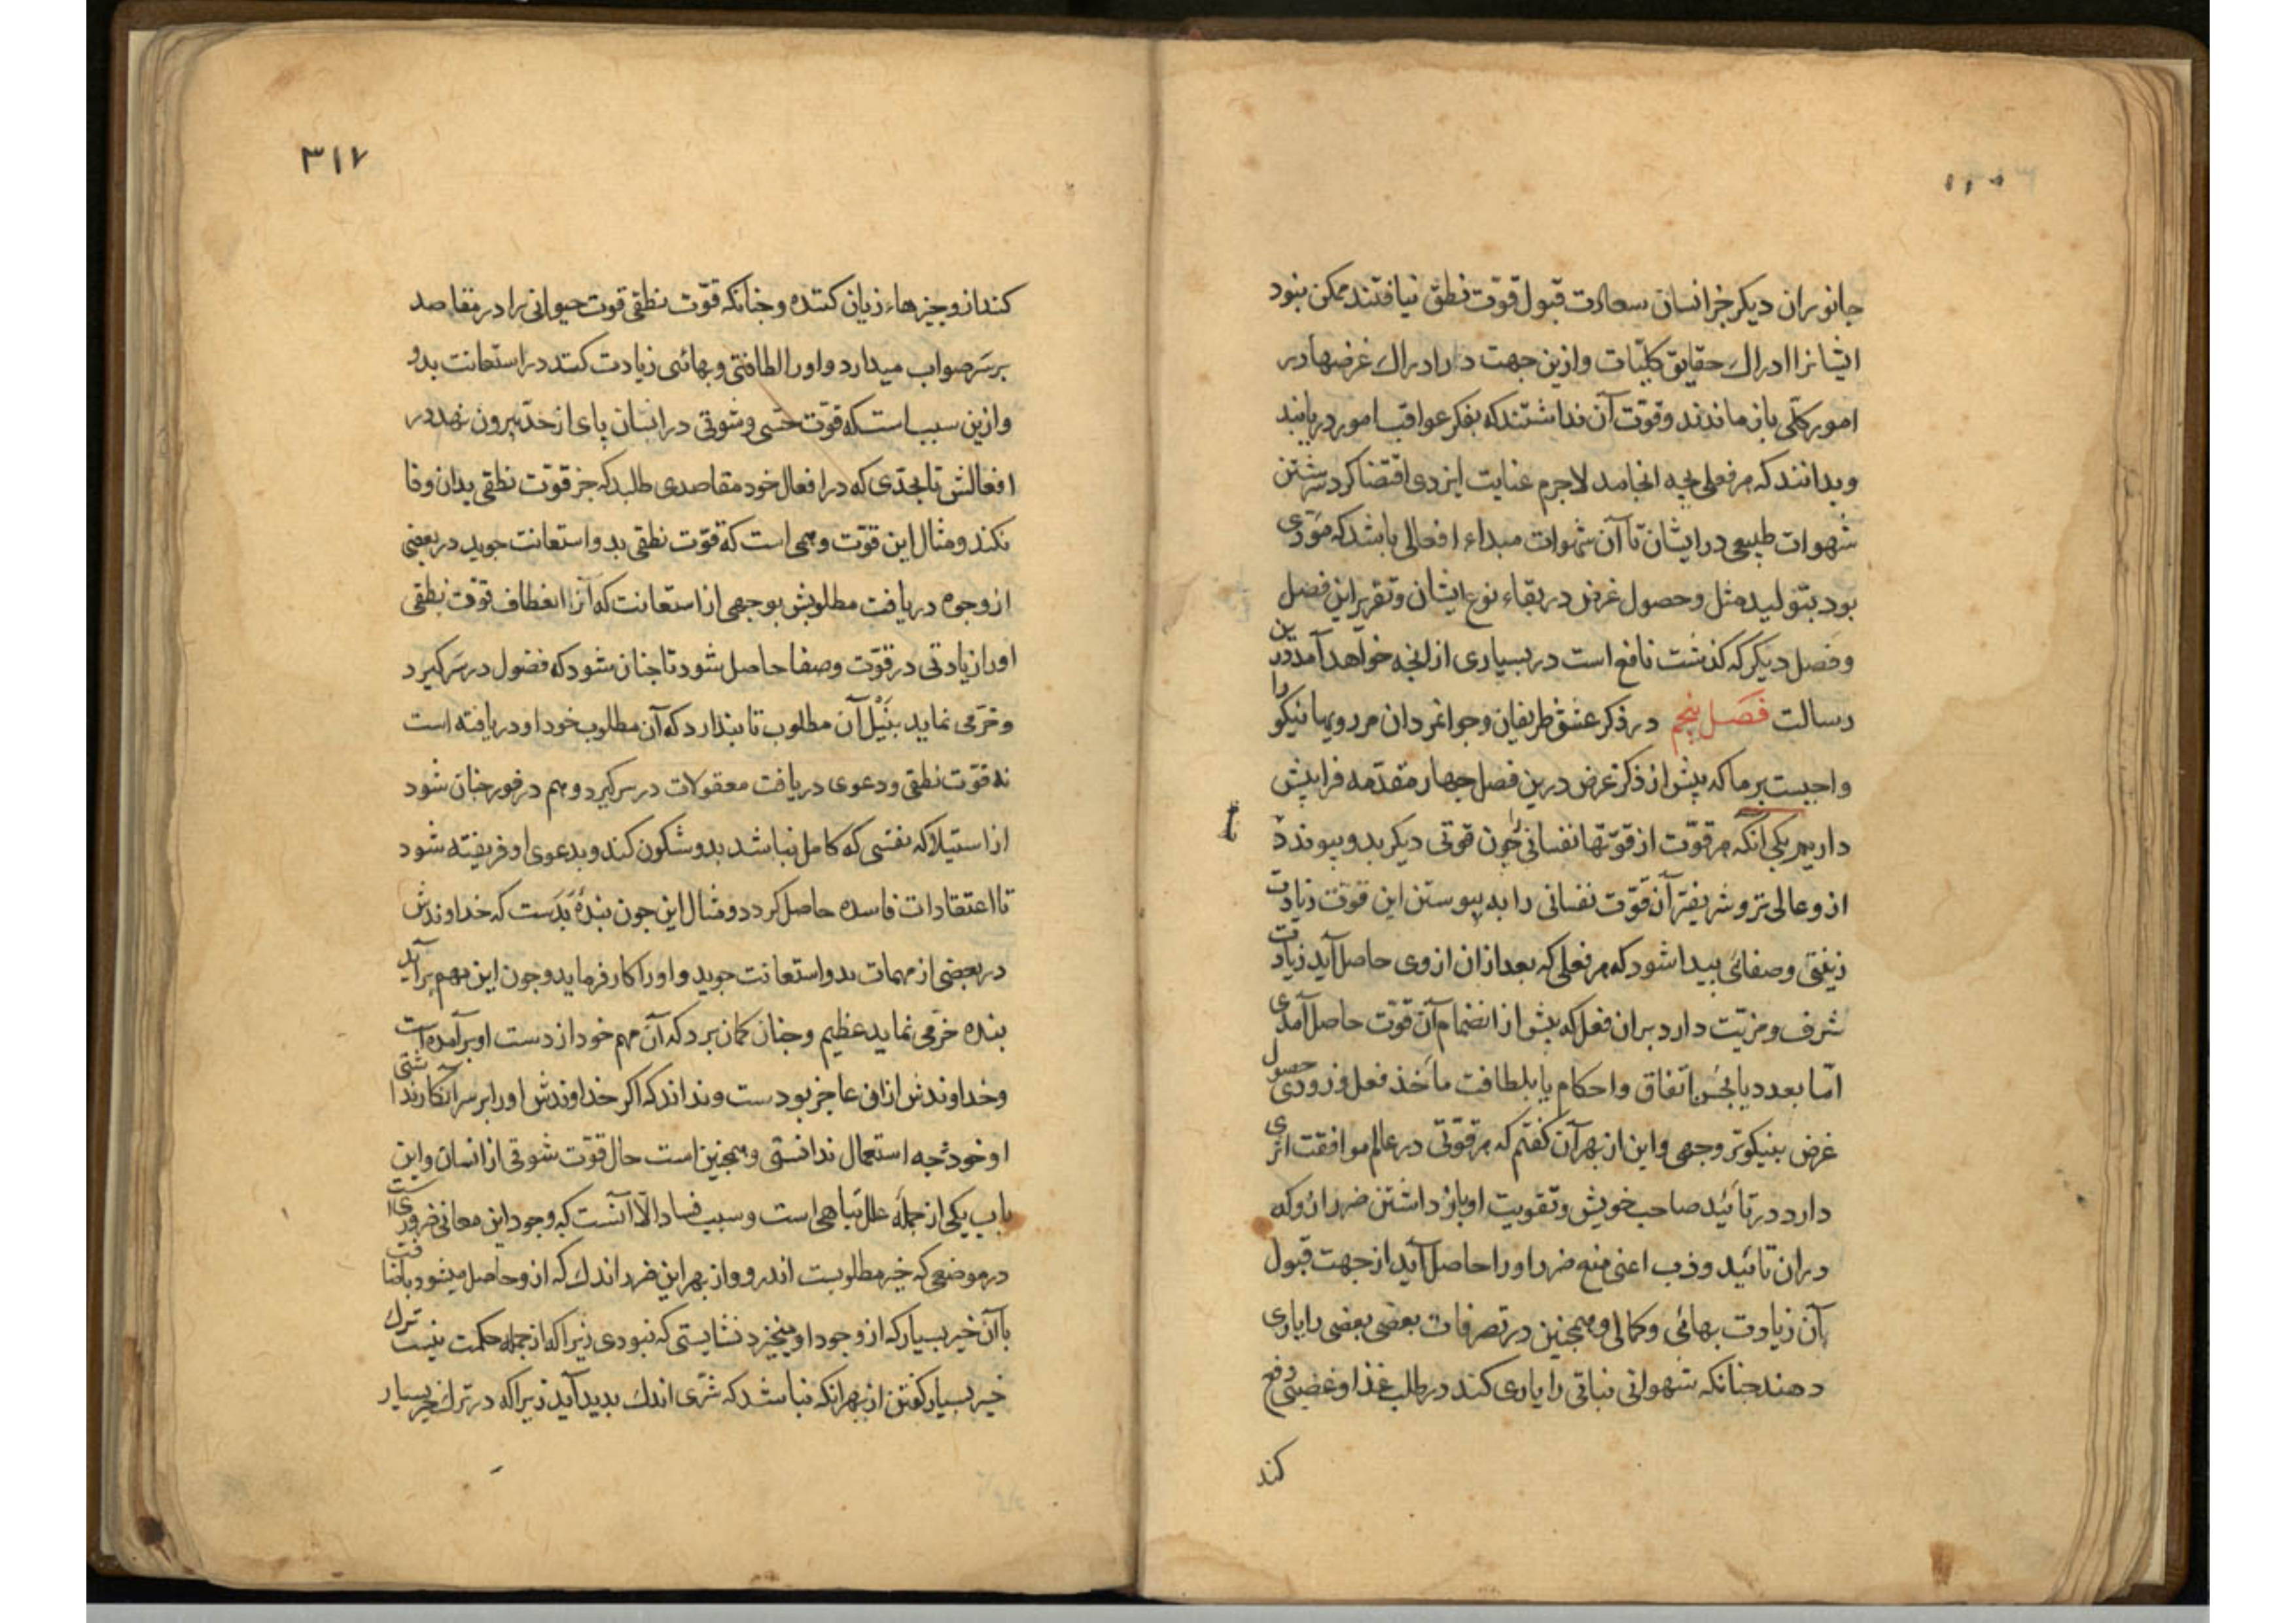 جانوران دیکر جز انسان سعادت قبول قوّت نطق نیافتند ممکن نبود
ایشانرا ادراك حقایق کلیّات وازین جهت در ادراك غرضها در
امور کلّی باز ماندند وقوّت آن نداشتند که بفکر عواقب امور دریابند
وبدانند که هر فعلی بچه انجامد لاجرم عنایت ایزدی اقتضا کرد سرشتن
شهوات طبیعی در ایشان تا آن شهوات مبداء افعالی باشد که مؤدّی
بود بتولید مثل وحصول غرض در بقاء نوع ایشان وتقریر این فصل
وفصل دیکر که کذشت نافع است در بسیاری از انچه خواهد آمد درین
رسالت فصل پنجم در ذکر عشق ظریفان وجوانمردان مر رویها نیکو را
واجبست بر ما که پیش از ذکر غرض درین فصل چهار مقدّمه فراپیش
داریم یکی آنکه هر قوّت از قوّتها نفسانی چون قوتی دیکر بدو پیوندد
ازو عالی تر وشریفتر آن قوّت نفسانی را به پیوستن این قوّت زیادت
زینتی وصفائی پیدا شود که هر فعلی که بعد ازان ازوی حاصل آید زیادت
شرف ومزیّت دارد بران فعل که پیش از انضمام آن قوّت حاصل آمدی
امّا بعدد یا بحُسن اتفاق واحکام یا بلطافت مأخذ فعل وزودی حصول
غرض بنیکوتر وجهی واین از بهر آن کفتم که هر قوّتی در عالم موافقت اثری
دارد در تائید صاحب خویش وتقویت او باز داشتن ضرر ازو که
دران تائید وذب اعنی منع ضرر اورا حاصل آید از جهت قبول
آن زیادت بهائی وکمالی وهمچنین در تصرفات بعضی بعضی را یاری
دهند چنانکه شهوانی نباتی را یاری کند در طلب غذا وغضبی دفع
کند
۳۱۷
کند ازو چیزهاء زیان کننده وچنانکه قوّت نطقی قوت حیوانی را در مقاصد
بر سَر صواب میدارد واورا لطافتی وبهائی زیادت کند در استعانت بدو
وازین سبب است که قوّت حسّی وشوقی در انسان پای از حدّ بیرون نهد در
افعالش تا بحدّی که در افعال خود مقاصدی طلبد که جز قوّت نطقی بدان وفا
نکند ومثال این قوّت وهمی است که قوّت نطقی بدو استعانت جوید در بعضی
از وجوه دریافت مطلوبش بوجهی از استعانت که آنرا انعطاف قوّت نطقی
اورا زیادتی در قوّت وصفا حاصل شود تا چنان شود که فضول در سَر کیرد
وخرّمی نماید بنَیْل آن مطلوب تا پندارد که آن مطلوب خود او دریافته است
نه قوّت نطقی ودعوی دریافت معقولات در سر کیرد وهم در فور چنان شود
از استیلا که نفسی که کامل نباشد بدو سکون کند وبدعوی او فریفته شود
تا اعتقادات فاسده حاصل کردد ومثال این چون بندهٔ بَدَست که خداوندش
در بعضی از مهمات بدو استعانت جوید واورا کار فرماید وچون این مهم برآید
بنده خرّمی نماید عظیم وچنان کمان برد که آن مهم خود از دست او برآمده است
وخداوندش ازان عاجز بودست ونداند که اکر خداوندش اورا بر سر آنکار نداشتی
او خود چه استعمال ندانستی وهمچنین است حال قوّت شوقی از انسان واین
باب یکی از جملَه علل تباهی است وسبب فساد الّا آنست که وجود این معانی ضروریست
در موضعی که خیر مطلوبست اندرو واز بهر این ضرر اندك که ازو حاصل میشود باضافت
با آن خیر بسیار که از وجود او میخیزد نشایستی که نبودی زیرا که از جمله حکمت نیست ترك
خیر بسیار کفتن از بهر آنکه نباشد که شرّی اندك پدید آید زیرا که در ترك خیر بسیار